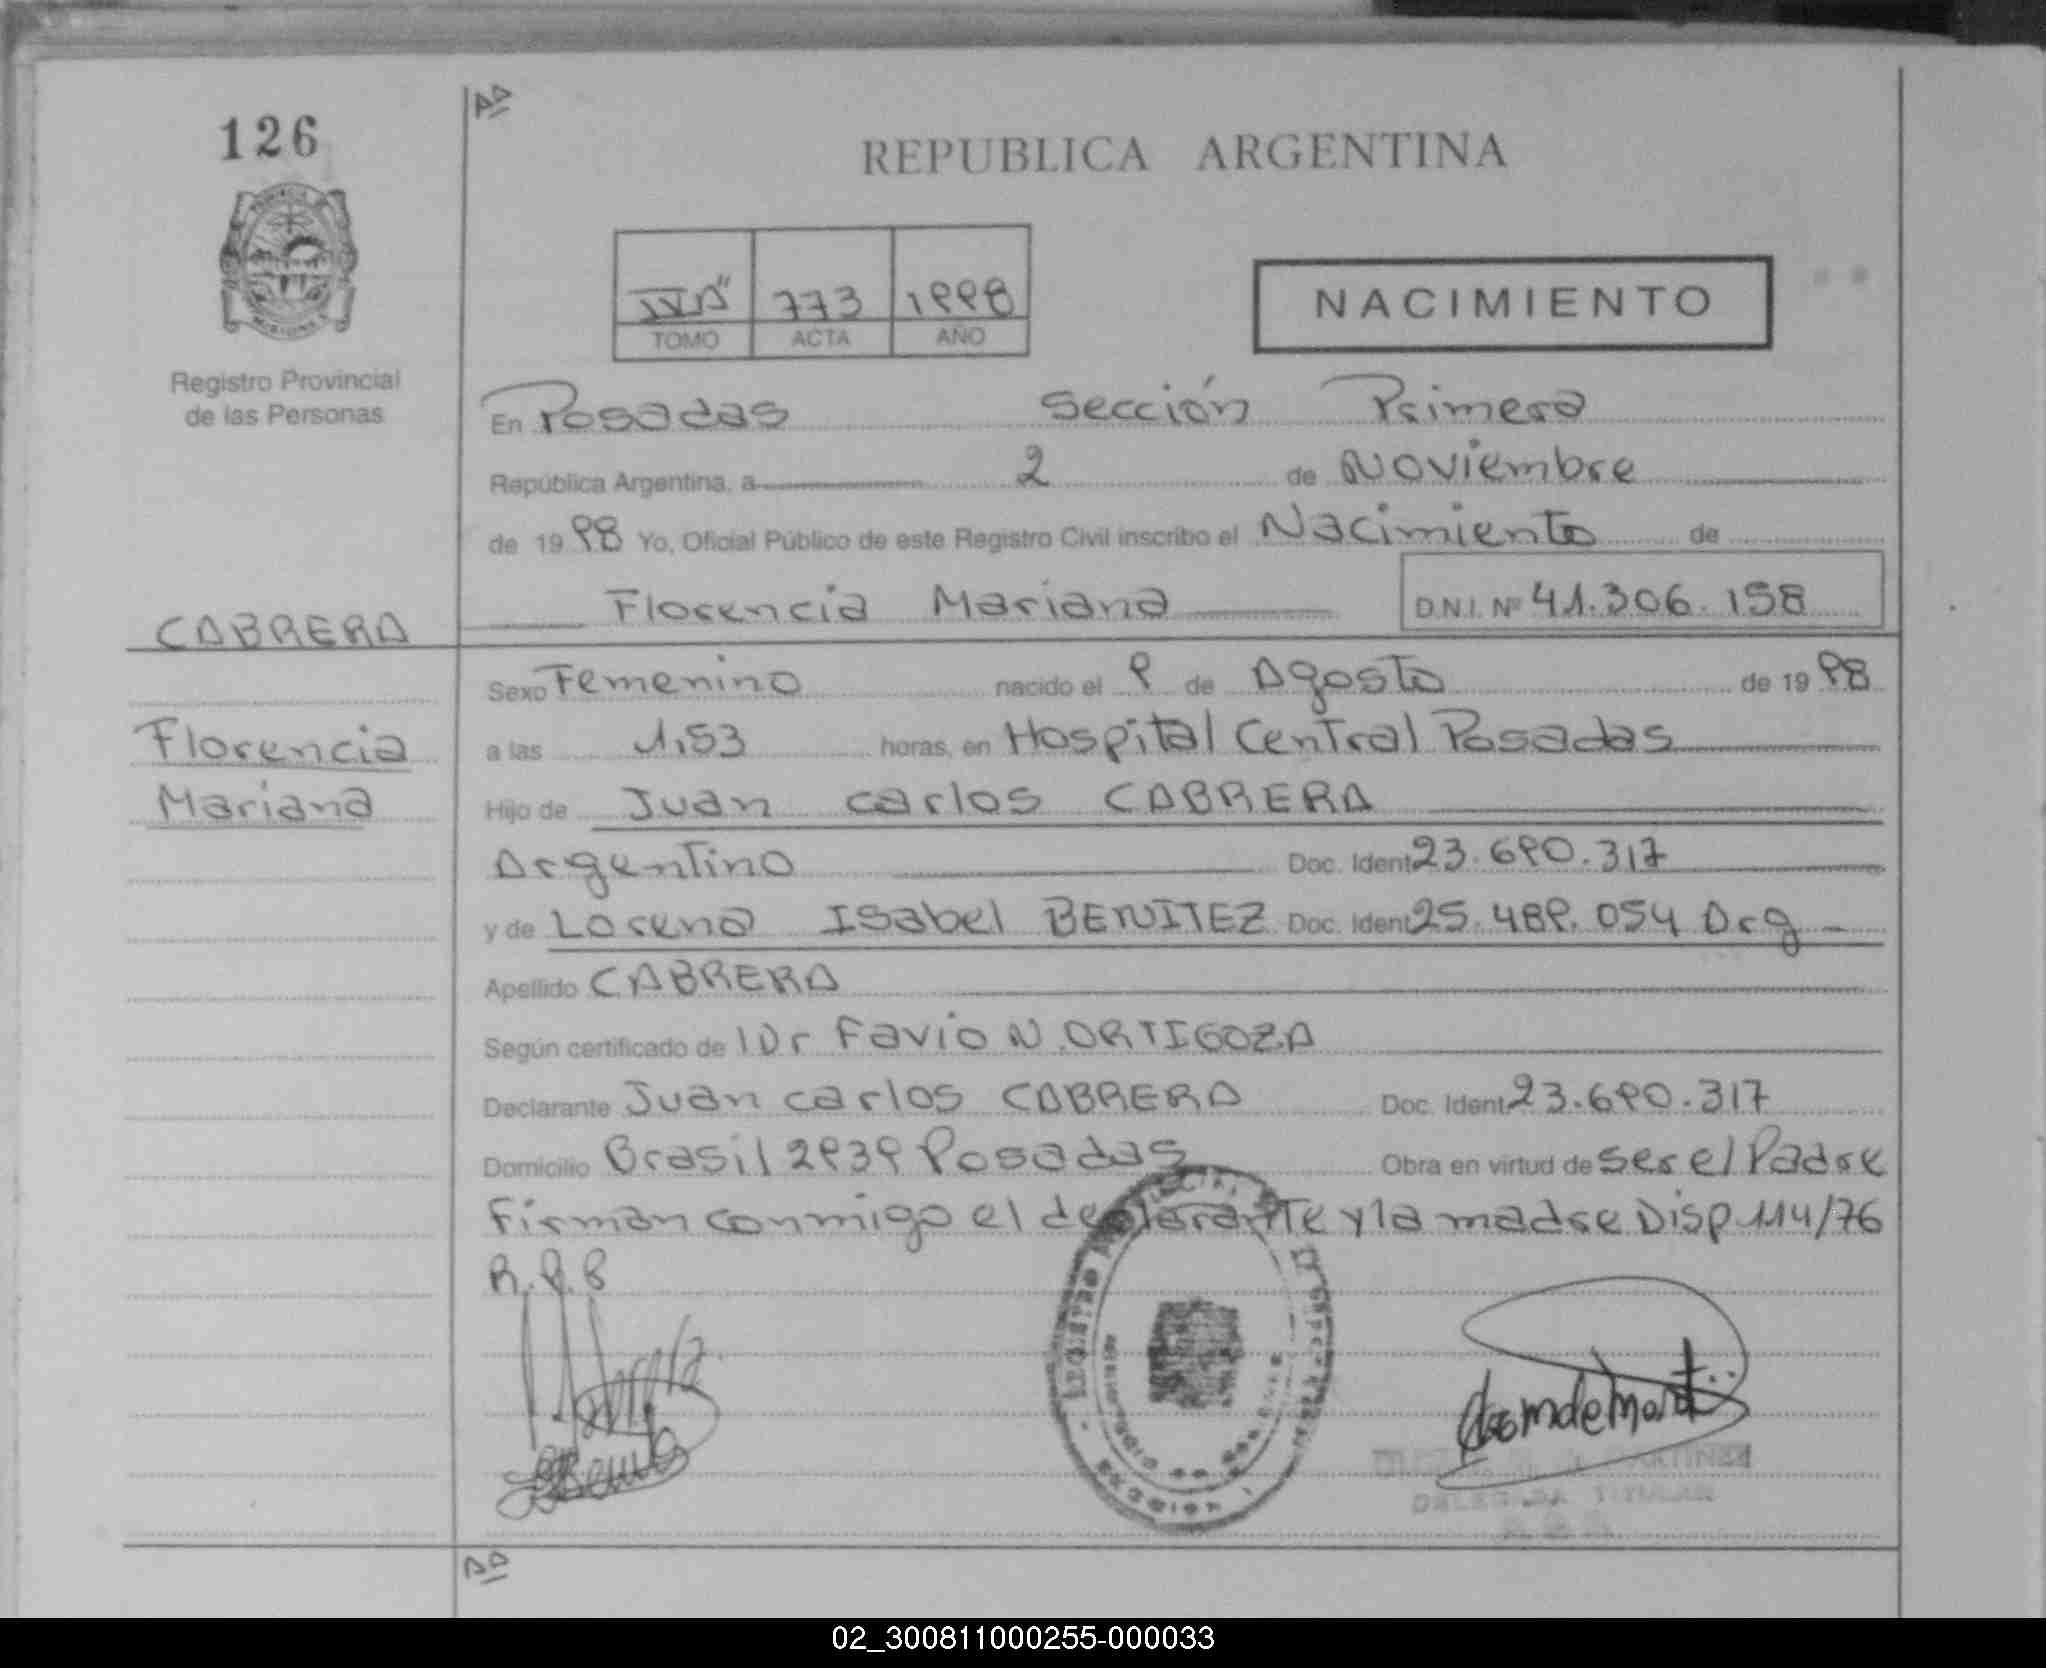 126
REPUBLICA ARGENTINA
773 1998
TOMO ACTA AÑO
NACIMIENTO
Registro Provincial
de las Personas
En Posadas Sección Primera
República Argentina, a 2 de Noviembre
de 1998 Yo, Oficial Público de este Registro Civil inscribo el Nacimiento de
Florencia Mariana D.N.I. Nº 41.306.158
CABRERA
Florencia
Mariana
Sexo Femenino nacido el 9 de Agosto de 1998
a las 1,53 horas, en Hospital Central Posadas
Hijo de Juan Carlos CABRERA
Argentino Doc. Ident 23.690.317
y de Lorena Isabel BENITEZ Doc. Ident 25.489.054 Arg
Apellido CABRERA
Según certificado de Dr Favio N. ORTIGOZA
Declarante Juan Carlos CABRERA Doc. Ident 23.690.317
Domicilio Brasil 2939 Posadas Obra en virtud de ser el Padre
Firman conmigo el declarante y la madre Disp 114/76
DELEGADA TITULAR
02_300811000255-000033